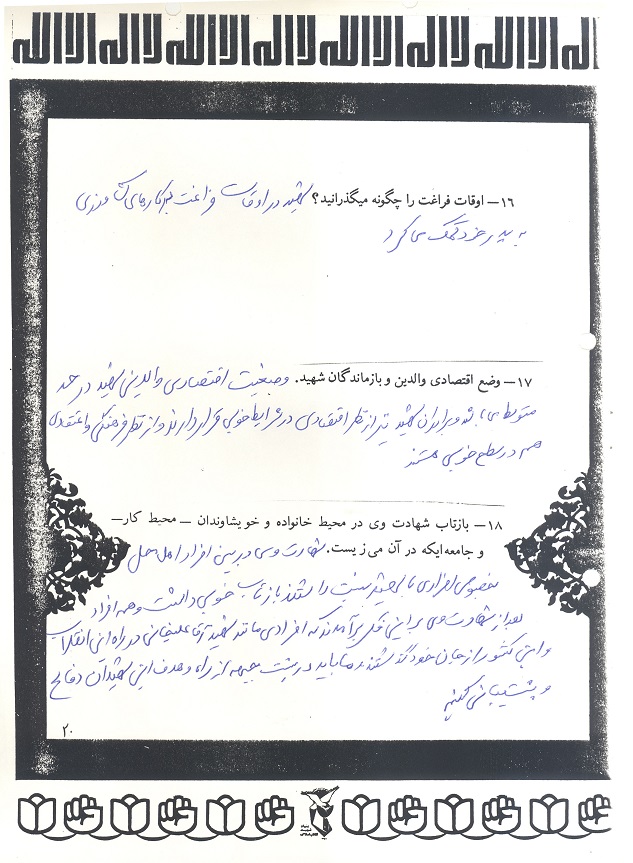 لا اله الا الله لا اله الا الله لا اله الا الله
۱۶ــ اوقات فراغت را چگونه میگذرانید؟ شهید در اوقات فراغت در کارهای کشاورزی
به پدر خود کمک می کرد
۱۷ــ وضع اقتصادی والدین و بازماندگان شهید. وضعیت اقتصادی والدین شهید در حد
متوسط می باشد و برادران شهید نیز از نظر اقتصادی در شرایط خوبی قرار دارند و از نظر فرهنگی و اعتقادی
هم در سطح خوبی هستند
۱۸ــ بازتاب شهادت وی در محیط خانواده و خویشاوندان ــ محیط کار ــ
و جامعه‌ایکه در آن می‌زیست. شهادت وی در بین افراد اهل محل
بخصوص افرادی با بصیرت داشتند بازتاب خوبی داشت و همه افراد
بعد از شهادت وی بر این فکر برآمدند که افرادی مانند شهید آقا علیخانی در راه این انقلاب
و این کشور از جان خود گذشتند ما باید در پشت جبهه از راه و هدف این شهیدان دفاع
و پشتیبانی کنیم
۲۰